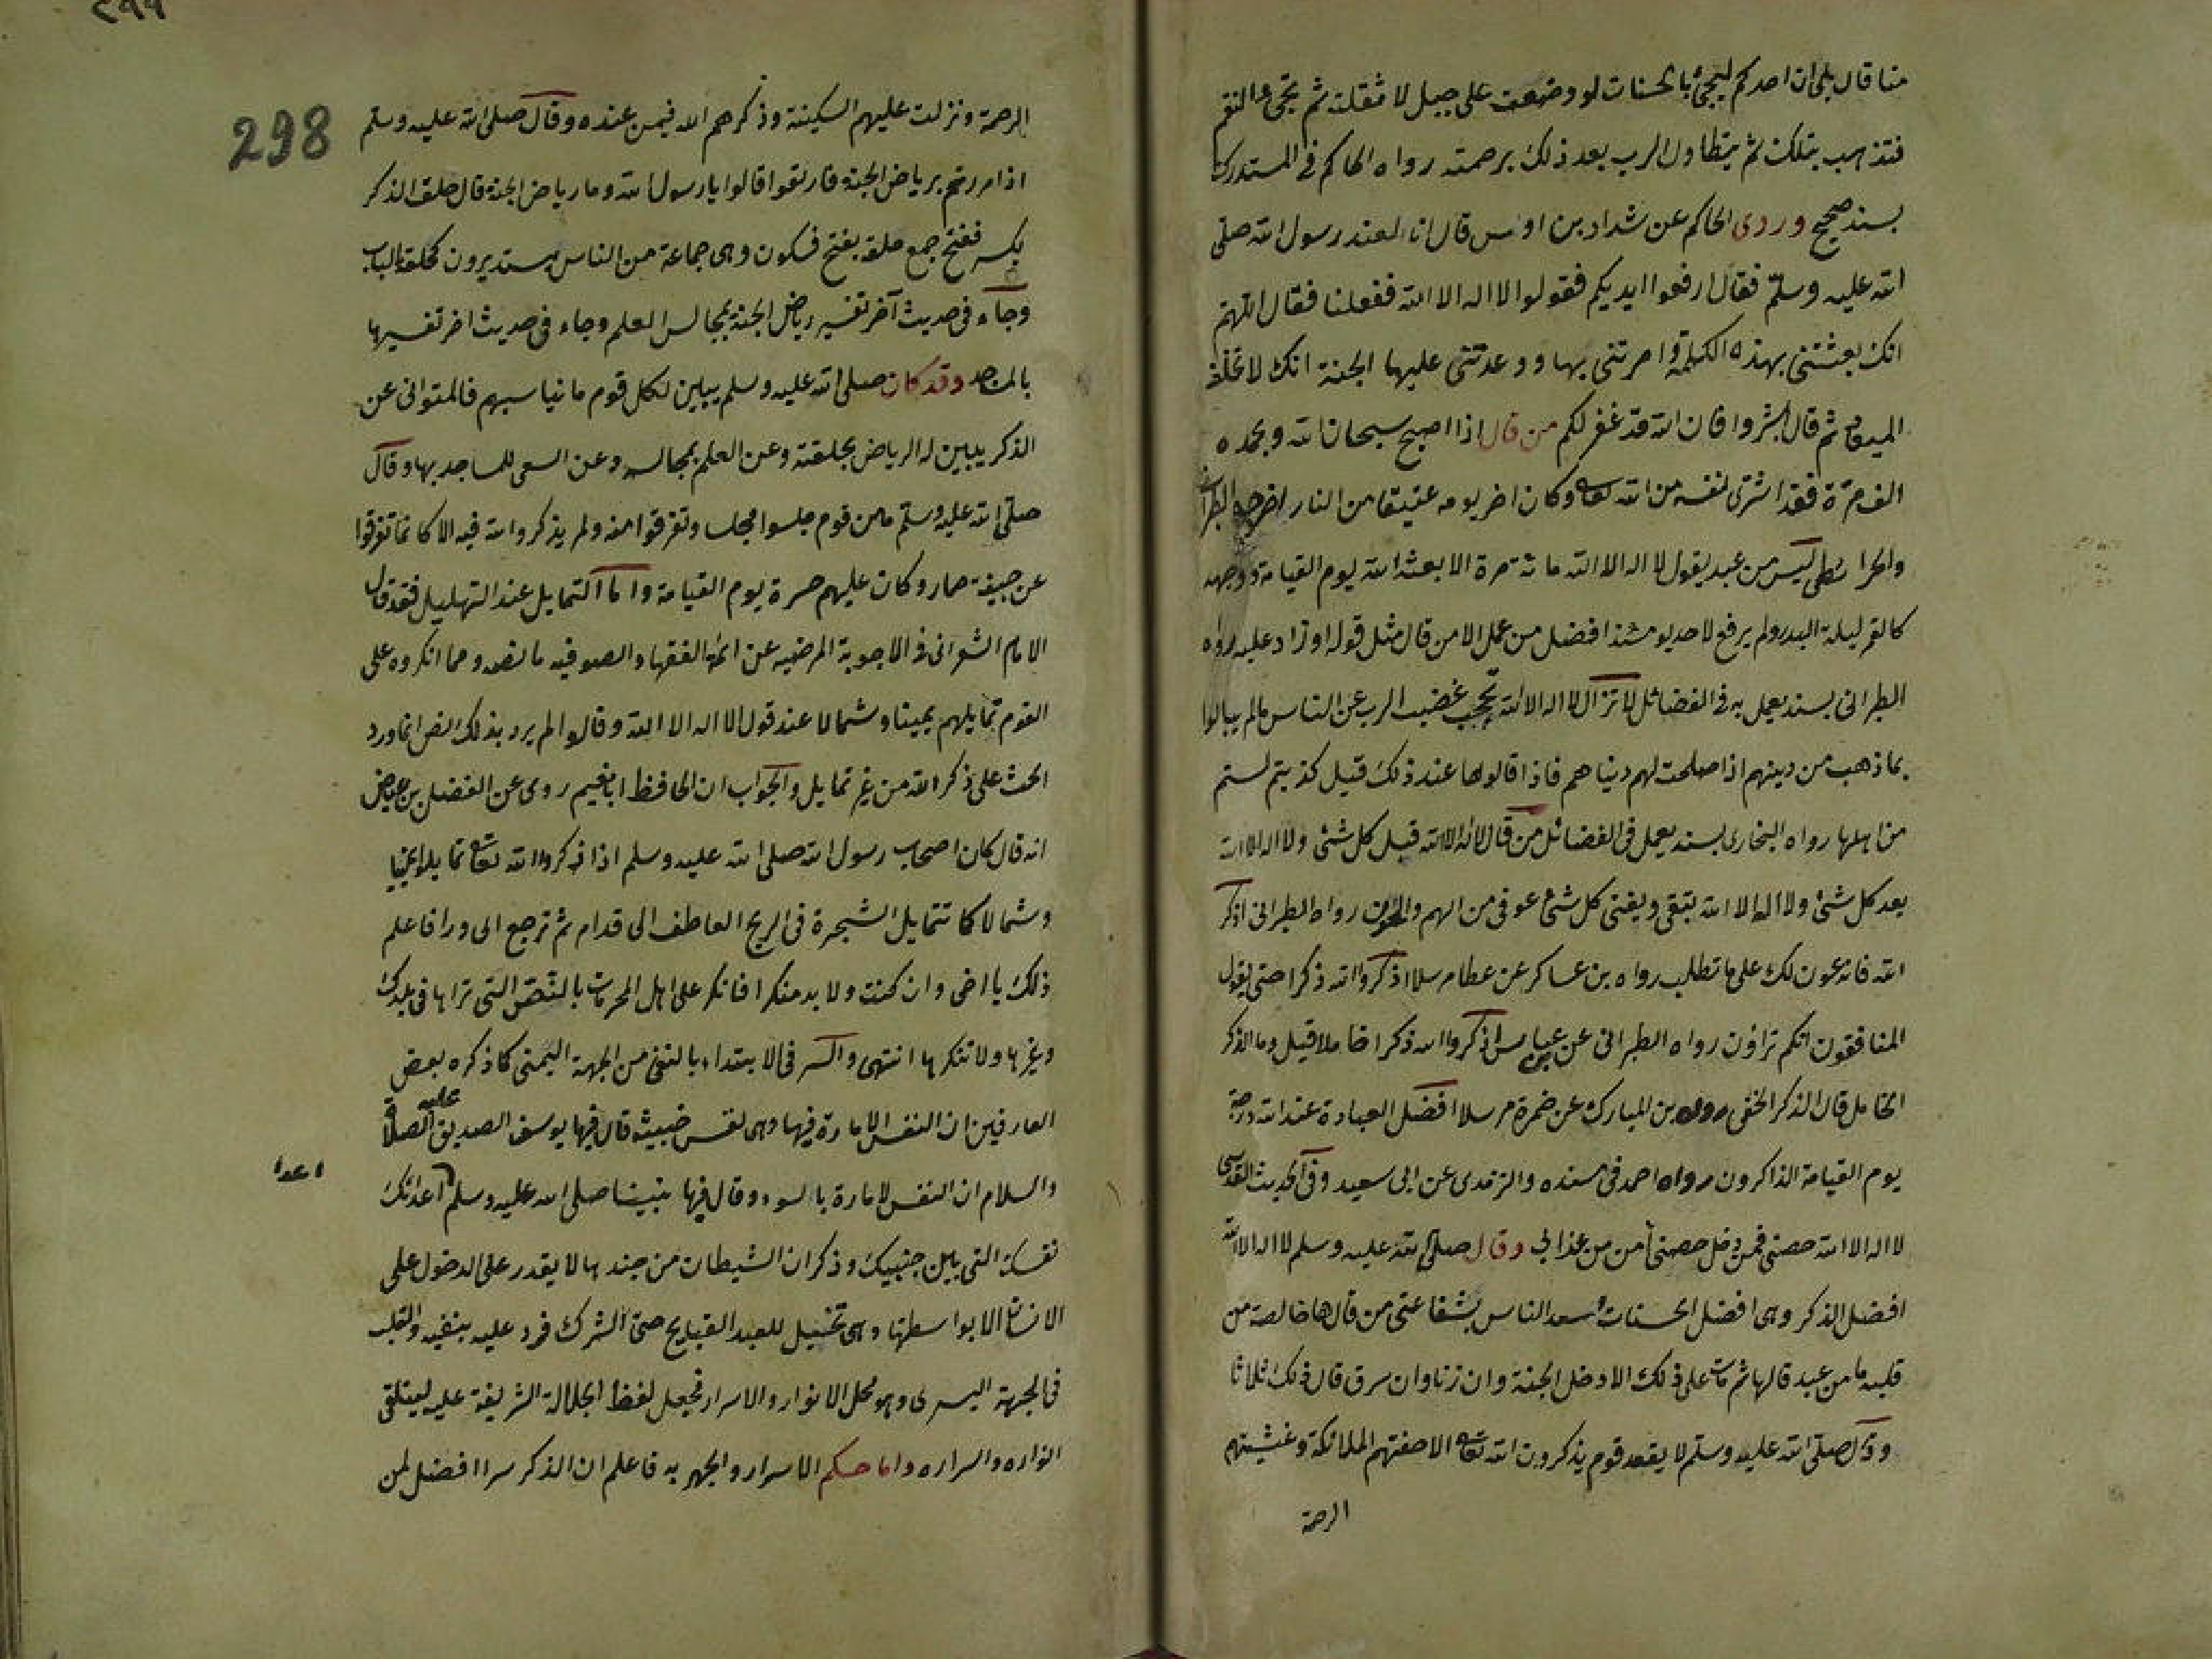 منا قال بلى ان احدكم ليجئ بالحسنات لو وضعت على جبل لاثقلته ثم تجئ النعم
فتذهب بتلك ثم يتطاول الرب بعد ذلك برحمته رواه الحاكم فى المستدرك
بسند صحيح وروى الحاكم عن شداد بن اوس قال انا لعند رسول الله صلى
الله عليه وسلم فقال ارفعوا ايديكم فقولوا لا اله الا الله ففعلنا فقال اللهم
انك بعثتنى بهذه الكلمة وامرتنى بها ووعدتنى عليها الجنة انك لا تخلف
الميعاد ثم قال ابشروا فان الله قد غفر لكم من قال اذا اصبح سبحان الله وبحمده
الف مرة فقد اشترى نفسه من الله تعالى وكان اخر يومه عتيقا من النار اخرجه الطبرانى
والخرائطى ليس من عبد يقول لا اله الا الله مائة مرة الا بعثه الله يوم القيامة ووجهه
كالقمر ليلة البدر ولم يرفع لاحد يومئذ افضل من عمل الا من قال مثل قوله او زاد عليه رواه
الطبرانى بسند يعمل به فى الفضائل لا تزال لا اله الا الله تحجب غضب الرب عن الناس مالم يبالوا
بما ذهب من دينهم اذا صلحت لهم دنياهم فاذا قالوها عند ذلك قيل كذبتم لستم
من اهلها رواه البخارى بسند يعمل فى الفضائل من قال لا اله الا الله قبل كل شئ ولا اله الا الله
بعد كل شئ ولا اله الا الله يبقى ويفنى كل شئ عوفى من الهم والحزن رواه الطبرانى اذكر
الله فانه عون لك على ما تطلب رواه بن عساكر عن عطا مرسلا اذكروا الله ذكرا حتى يقول
المنافقون انكم تراؤن رواه الطبرانى عن عباس اذكروا الله ذكرا خاملا قيل وما الذكر
الخامل قال الذكر الخفى رواه بن المبارك عن ضمرة مرسلا افضل العبادة عند الله درجة
يوم القيامة الذاكرون رواه احمد فى مسنده والترمذى عن ابى سعيد وفى الحديث القدسى
لا اله الا الله حصنى فمن دخل حصنى أمن من عذابي وقال صلى الله عليه وسلم لا اله الا الله
افضل الذكر وهى افضل الحسنات اسعد الناس بشفاعتى من قالها خالصة من
قلبه ما من عبد قالها ثم مات على ذلك الا دخل الجنة وان زنا وان سرق قال ذلك ثلاثا
وقال صلى الله عليه وسلم لا يقعد قوم يذكرون الله تعالى الا حفتهم الملائكة وغشيتهم
الرحمة
298
الرحمة ونزلت عليهم السكينة وذكرهم الله فيمن عنده وقال صلى الله عليه وسلم
اذا مررتم برياض الجنة فارتعوا قالوا يا رسول الله وما رياض الجنة قال حلق الذكر
بكسر ففتح جمع حلقة بفتح فسكون وهى جماعة من الناس يستديرون كحلقة الباب
وجاء فى حديث آخر تفسير رياض الجنة بمجالس العلم وجاء فى حديث اخر تفسيرها
بالمساجد وقد كان صلى الله عليه وسلم يبين لكل قوم ما يناسبهم فالمتوانى عن
الذكر يبين له الرياض بحلقته وعن العلم بمجالسه وعن السعى للمساجد بها وقال
صلى الله عليه وسلم ما من قوم جلسوا مجلسا وتفرقوا منه ولم يذكروا الله فيه الا كانما تفرقوا
عن جيفة حمار وكان عليهم حسرة يوم القيامة واما التمايل عند التهليل فقد قال
الامام الشعرانى فى الاجوبة المرضيه عن ائمة الفقها والصوفيه ما نصه ومما انكروه على
القوم تمايلهم يمينا وشمالا عند قول لا اله الا الله وقالوا لم يرد بذلك نص انما ورد
الحث على ذكر الله من غير تمايل والجواب ان الحافظ ابا نعيم روى عن الفضيل بن عياض
انه قال كان اصحاب رسول الله صلى الله عليه وسلم اذا ذكروا الله تعالى تمايلوا يمينا
وشمالا كما تتمايل الشجرة فى الريح العاطف الى قدام ثم ترجع الى ورا فاعلم
ذلك يا اخى وان كنت ولا بد منكرا فانكر على اهل المحرمات بالنقص التى تراها فى بلدك
وغيرها ولا تنكرها انتهى والسر فى الابتداء بالنفى من الجهة اليمنى كما ذكره بعض
العارفين ان النفس الامارة فيها وهى نفس خبيثه قال فيها يوسف الصديق عليه الصلاة
والسلام ان النفس لامارة بالسوء وقال فيها نبينا صلى الله عليه وسلم اعدائك
اعدا
نفسك التى بين جنبيك وذكر ان الشيطان من جندها لا يقدر على الدخول على
الانسان الا بواسطتها وهى تخيل للعبد القبايح حتى الشرك فرد عليه بنفيه والقلب
فى الجهة اليسرى وهو محل الانوار والاسرار فجعل لفظ الجلالة الشريفة عليه ليتلقى
انواره واسراره واما حكم الاسرار والجهر به فاعلم ان الذكر سرا افضل لمن